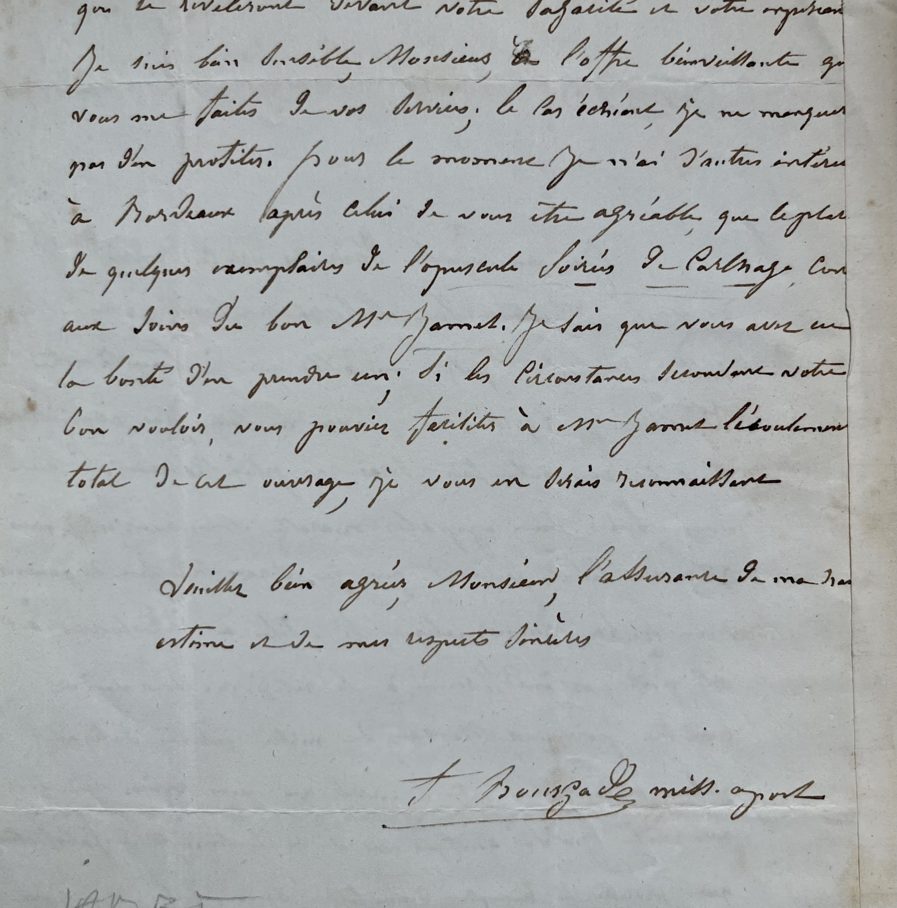 qui se révéleront devant votre sagacité et votre
Je suis bien sensible, Monsieur, à l'offre bienveillante q
vous me faites de vos services; le cas échéant, je ne manquer
pas d'en profiter. pour le moment je n'ai d'autres intére
à Bordeaux après celui de vous être agréable, que le pla
de quelques exemplaires de l'opuscule Soirées de Carthage, con
aux soins du bon Mr Jamet. Je sais que vous avez eu
la bonté d'en prendre un; Si les circonstances secondant votre
bon vouloir, vous pouviez faciliter à Mr Jamet l'écoulemen
total de cet ouvrage, je vous en serais reconnaissant
Veuillez bien agréer, Monsieur, l'assurance de ma
estime et de mes respects sincères
f Bourgade miss. apost